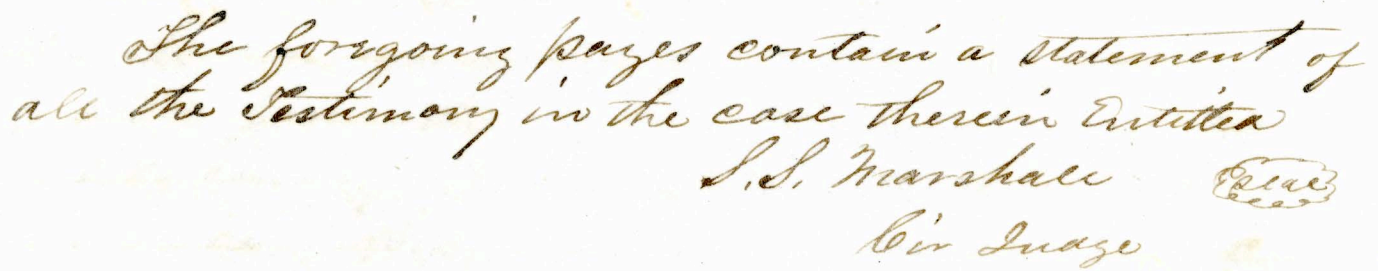 The foregoing pages contain a statement of
all the Testimony in the case therein Entitled
S. S. Marshall Seal
Cir Judge